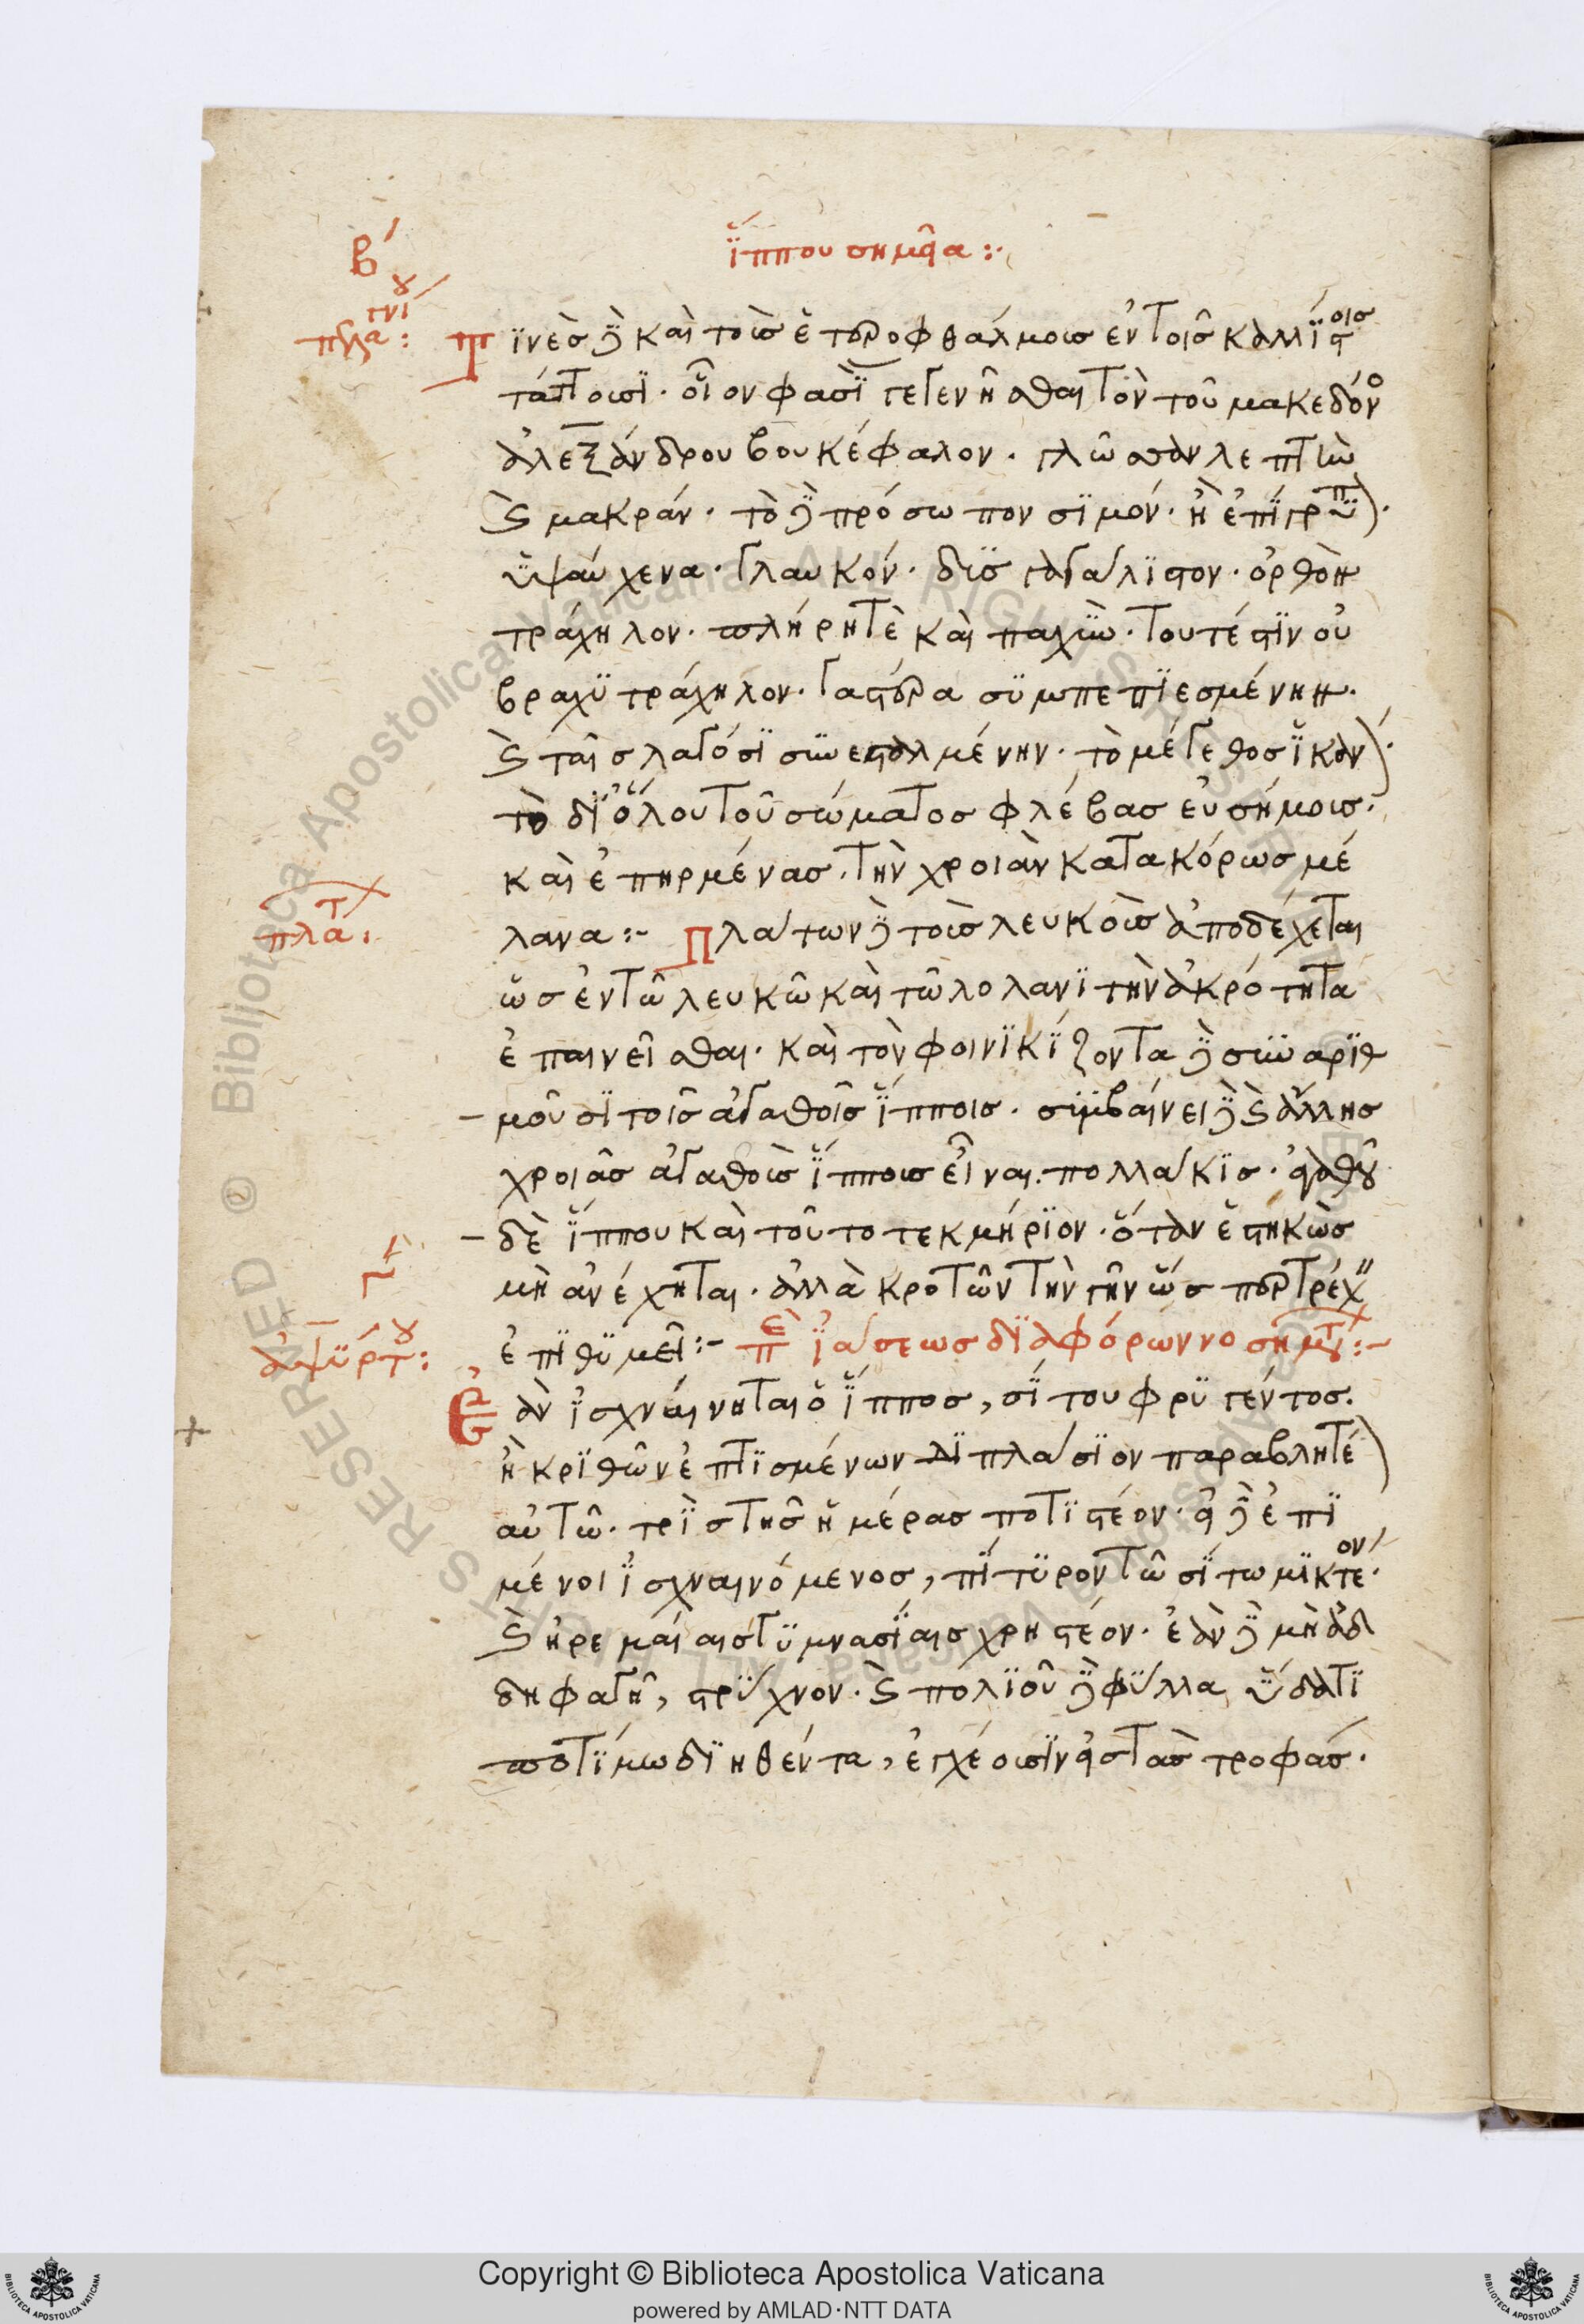 β´
ἵππου σημεῖα :·
πελαγωνίου :
Τινὲς δὲ καὶ τοὺς ἑτεροφθάλμους ἐν τοῖς καλλίστοις
τάττουσι · οἷον φασὶ γεγενῆσθαι τὸν τοῦ μακεδόνος
ἀλεξάνδρου βουκέφαλον · γλῶσσαν λεπτὴν
καὶ μακράν · τὸ δὲ πρόσωπον σιμόν · ἢ ἐπίγρυπον ·
ὑψαύχενα · γλαυκόν · ὀρθὸν
τράχηλον · πλήρη τὲ καὶ παχὺν · τουτέστιν οὐ
βραχυτράχηλον · γαστέρα συμπεπιεσμένην ·
καὶ ταῖς λαγόσι συνεσταλμένην · τὸ μέγεθος ἱκανόν ·
τὸ δι' ὅλου τοῦ σώματος φλέβας εὐσήμους ·
καὶ ἐπηρμένας · τὴν χροιὰν κατακόρως μέ
πλάτ :
λανα :- Πλάτων δὲ τοὺς λευκοὺς ἀποδέχεται
ὡς ἐν τῶ λευκῶ καὶ τῶ λολανι τὴν ἀκρότητα
ἐπαινεῖσθαι · καὶ τὸν φοινικίζοντα δὲ συναριθ
μοῦσι τοῖς ἀγαθοῖς ἵπποις · συμβαίνει δὲ καὶ ἄλλης
χροιᾶς ἀγαθοὺς ἵππους εἶναι πολλάκις · ἀγαθοῦ
δὲ ἵππου καὶ τοῦτο τεκμήριον · ὅταν ἑστηκὼς
γ´
μὴ ἀνέχηται · ἀλλὰ κροτῶν τὴν γῆν ὥσπερ τρέχειν
ἀψύρτου :
ἐπιθυμεῖ :- περὶ ἰάσεως διαφόρων νοσημάτων :-
Ἐὰν ἰσχναίνηται ὁ ἵππος, σίτου φρυγέντος ·
ἢ κριθῶν ἐπτισμένων διπλάσιον παραβλητέον
αὐτῶ · τρὶς τῆς ἡμέρας ποτιστέον · εἰ δὲ ἐπι
μένοι ἰσχναινόμενος, πίτυρον τῶ σίτω μικτέον ·
καὶ ἠρεμαίαις γυμνασίαις χρηστέον · ἐὰν δὲ μὴ ἀδ
δηφαγῆ, στρύχνον · καὶ πολιοῦ δὲ φύλλα ὕδατι
ποτίμω διηθέντα, ἐγχέουσιν εἰς τὰς τροφάς ·
Biblioteca Apostolica Vaticana
ALL RIGHTS RESERVED ©
Copyright © Biblioteca Apostolica Vaticana
powered by AMLAD·NTT DATA
BIBLIOTECA APOSTOLICA VATICANA
BIBLIOTECA APOSTOLICA VATICANA